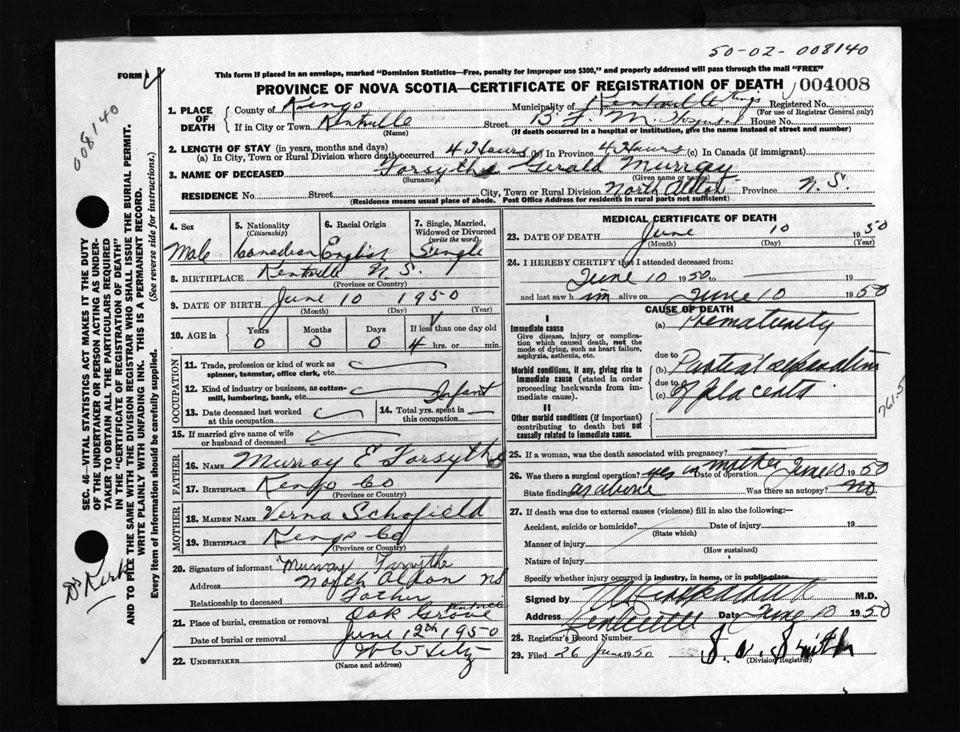 50-02-008140
FORM 1
This form if placed in an envelope, marked "Dominion Statistics—Free, penalty for improper use $300," and properly addressed will pass through the mail "FREE"
PROVINCE OF NOVA SCOTIA—CERTIFICATE OF REGISTRATION OF DEATH 004008
1. PLACE OF DEATH
County of Kings Municipality of Kentville Kings Registered No.
(For use of Registrar General only)
If in City or Town Kentville Street B. F. M. Hospital House No.
(Name) (If death occurred in a hospital or institution, give the name instead of street and number)
2. LENGTH OF STAY (in years, months and days)
(a) In City, Town or Rural Division where death occurred 4 Hours (b) In Province 4 Hours (c) In Canada (if immigrant)
3. NAME OF DECEASED Forsythe Gerald Murray
(Surname) (Given name or names)
RESIDENCE No. Street City, Town or Rural Division North Alton Province N.S.
(Residence means usual place of abode. Post Office Address for residents in rural parts not sufficient)
4. Sex
Male
5. Nationality (Citizenship)
Canadian
6. Racial Origin
English
7. Single, Married, Widowed or Divorced (write the word)
Single
8. BIRTHPLACE Kentville N.S.
(Province or Country)
9. DATE OF BIRTH June 10 1950
(Month) (Day) (Year)
10. AGE in Years Months Days If less than one day old
0 0 0 4 hrs. or min.
OCCUPATION
11. Trade, profession or kind of work as spinner, teamster, office clerk, etc.
12. Kind of industry or business, as cotton-mill, lumbering, bank, etc. Infant
13. Date deceased last worked at this occupation
14. Total yrs. spent in this occupation
15. If married give name of wife or husband of deceased
FATHER
16. NAME Murray E Forsythe
17. BIRTHPLACE Kings Co
(Province or Country)
MOTHER
18. MAIDEN NAME Verna Schofield
19. BIRTHPLACE Kings Co
(Province or Country)
20. Signature of informant "Murray" Forsythe
Address North Alton NS
Relationship to deceased Father
21. Place of burial, cremation or removal Oak Grove Kentville
Date of burial or removal June 12th 1950
22. UNDERTAKER
(Name and address)
MEDICAL CERTIFICATE OF DEATH
23. DATE OF DEATH June 10 1950
(Month) (Day) (Year)
24. I HEREBY CERTIFY that I attended deceased from:
June 10 1950 to 19
and last saw h im alive on June 10 1950
CAUSE OF DEATH
I
Immediate cause
Give disease, injury or complication which caused death, not the mode of dying, such as heart failure, asphyxia, asthenia, etc.
(a) Prematurity
due to
Morbid conditions, if any, giving rise to immediate cause (stated in order proceeding backwards from immediate cause).
(b) Partial separation
due to
(c) of placenta
761.5
II
Other morbid conditions (if important) contributing to death but not causally related to immediate cause.
25. If a woman, was the death associated with pregnancy?
26. Was there a surgical operation? yes on mother Date of operation June 10 1950
State findings as above Was there an autopsy? No
27. If death was due to external causes (violence) fill in also the following:—
Accident, suicide or homicide? Date of injury 19
(State which)
Manner of injury
(How sustained)
Nature of injury
Specify whether injury occurred in industry, in home, or in public place
Signed by M.D.
Address Kentville Date June 10 1950
28. Registrar's Record Number
29. Filed 26 June 1950
(Division Registrar)
008140
SEC. 46—VITAL STATISTICS ACT MAKES IT THE DUTY
OF THE UNDERTAKER OR PERSON ACTING AS UNDER-
TAKER TO OBTAIN ALL THE PARTICULARS REQUIRED
IN THE "CERTIFICATE OF REGISTRATION OF DEATH"
AND TO FILE THE SAME WITH THE DIVISION REGISTRAR WHO SHALL ISSUE THE BURIAL PERMIT.
WRITE PLAINLY WITH UNFADING INK. THIS IS A PERMANENT RECORD.
Every item of information should be carefully supplied. (See reverse side for instructions.)
Dr Kirk